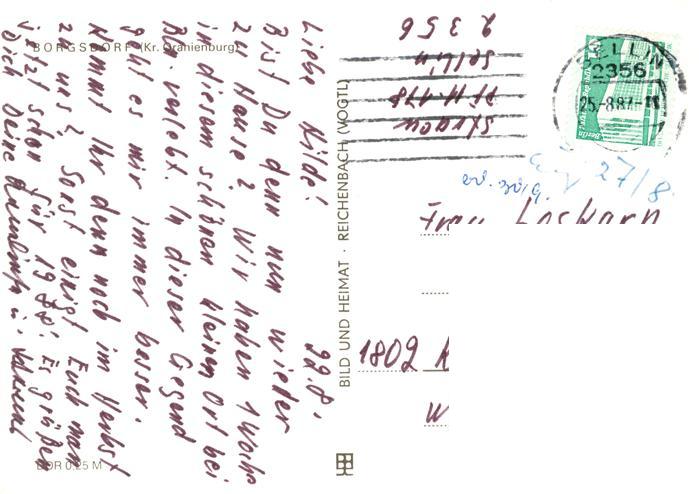 BORGSDORF (Kr. Oranienburg)
22.8.
Liebe Hilde!
Bist Du denn nun wieder
zu Hause? Wir haben 1 Woche
in diesem schönen kleinen Ort bei
verlebt. In dieser Gegend
geht es mir immer besser.
Kommt Ihr denn noch im Herbst
zu uns? Sonst einigt Euch man
jetzt schon für 1988! Es grüßen
Dich Deine u.
DDR 0,25 M
BILD UND HEIMAT · REICHENBACH (VOGTL)
PF II-118
Sellin
2356
SELLIN
2356
25.-8.87-11
27/8
Frau
1802 K
W